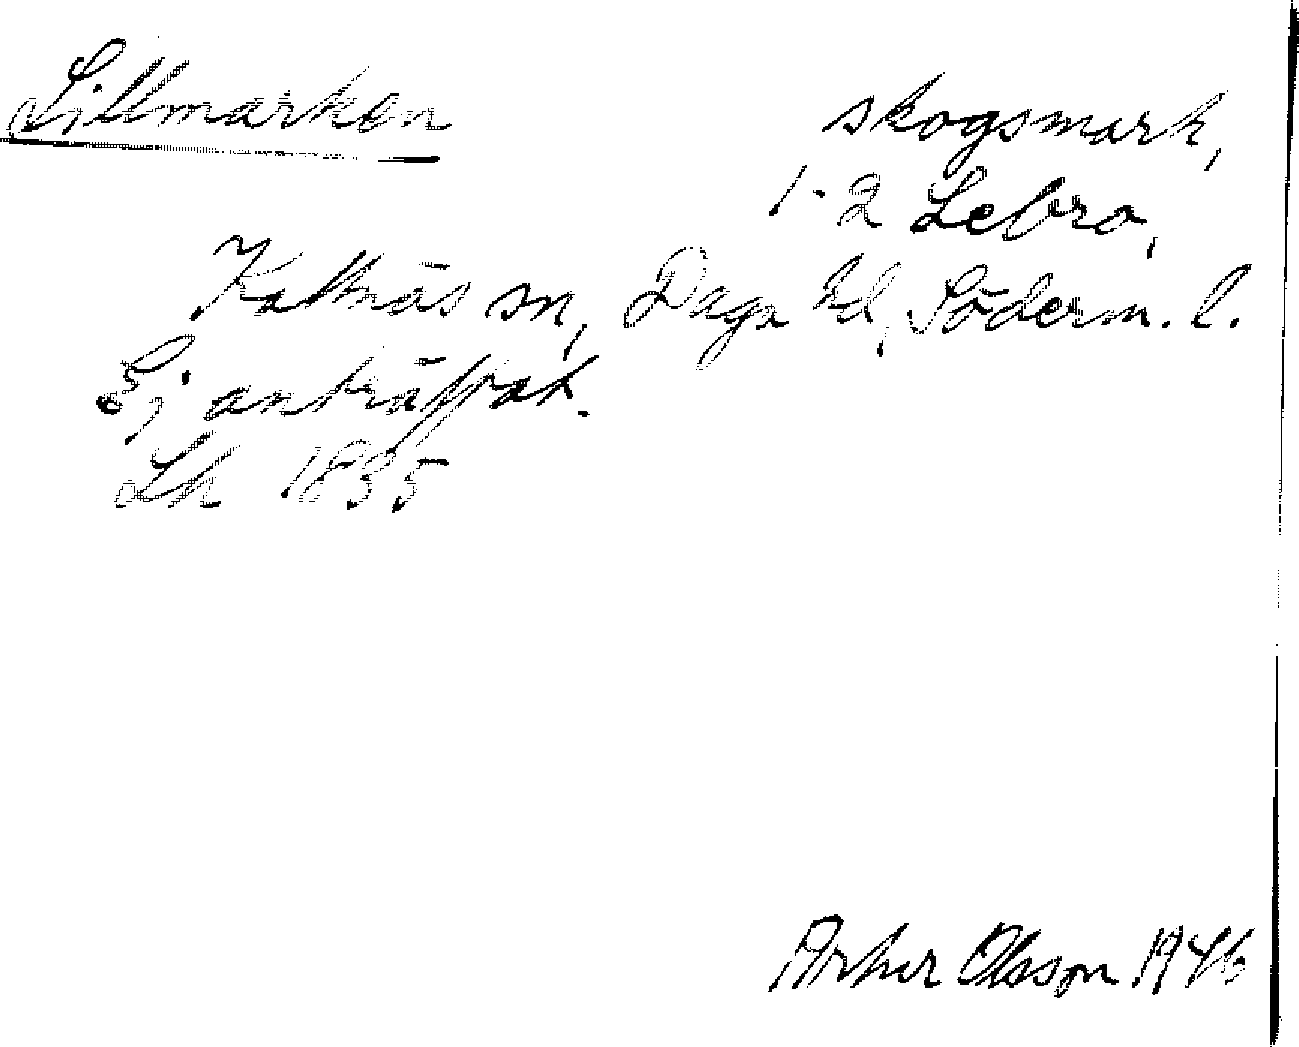 Lillmarken
skogsmark,
1-2 Lebro,
Kattnäs sn, Daga hd, Söderm. l.
Ej anträffat.
Lh 1835
Arthur Olsson 1946